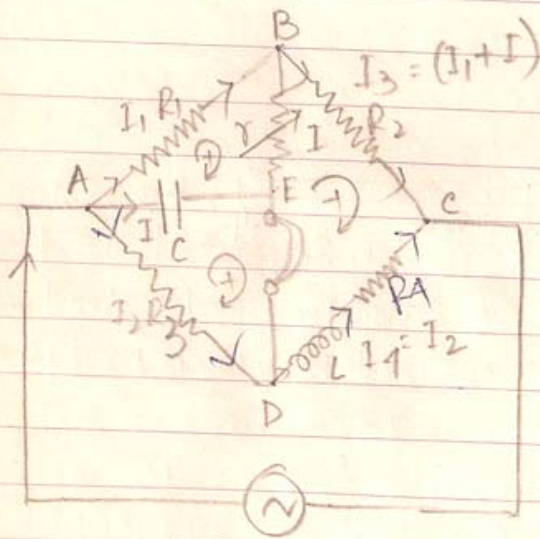 B
I₃ = (I₁ + I)
I₁ R₁
R₂
r
I
A
I
C
E
C
I₂ R₃
R4
L
I4 = I₂
D
~